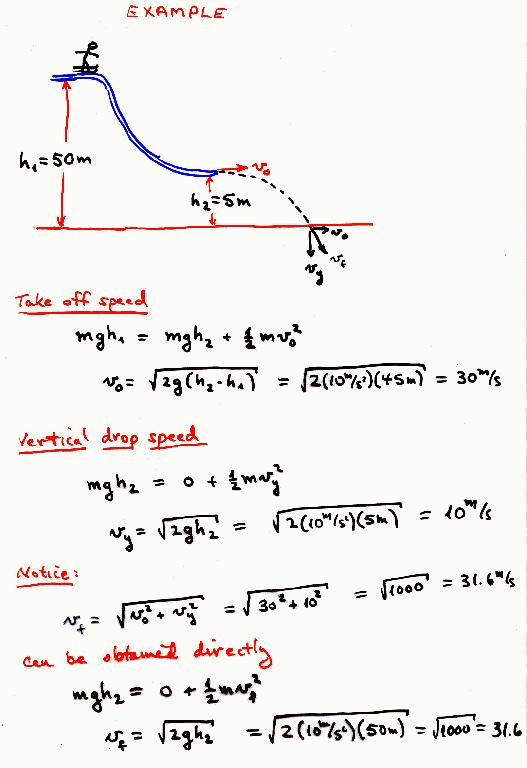 EXAMPLE
h₁=50m
v₀
h₂=5m
v₀
v_f
v_y
Take off speed
mgh₁ = mgh₂ + ½mv₀²
v₀= √2g(h₂-h₁) = √2(10m/s²)(45m) = 30m/s
Vertical drop speed
mgh₂ = 0 + ½mv_y²
v_y= √2gh₂ = √2(10m/s²)(5m) = 10m/s
Notice:
v_f = √v₀²+v_y² = √30²+10² = √1000 = 31.6m/s
can be obtained directly
mgh₂= 0 + ½mv_f²
v_f = √2gh₂ = √2(10m/s²)(50m) = √1000 = 31.6